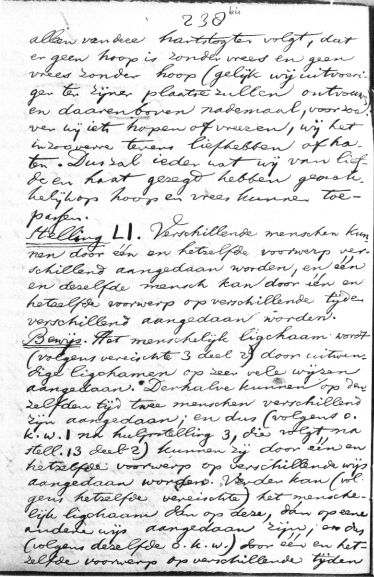 238 bis
allen van deze hartstogten volgt, dat
er geen hoop is zonder vrees en geen
vrees zonder hoop (gelijk wij uitvoeri-
ger te zijner plaatse zullen ontvouwen)
en daarenboven nademaal, voor zoo
ver wij iets hopen of vreezen, wij het
in zooverre tevens liefhebben of ha-
ten. Dus zal ieder wat wij van lief-
de en haat gezegd hebben gemak-
kelijk op hoop en vrees kunnen toe-
passen.
Stelling LI. Verschillende menschen kun-
nen door één en hetzelfde voorwerp ver-
schillend aangedaan worden, en één
en dezelfde mensch kan door één en
hetzelfde voorwerp op verschillende tijden
verschillend aangedaan worden.
Bewijs. Het menschelijk ligchaam wordt
(volgens vereischte 3 deel 2) door uitwen-
dige ligchamen op zeer vele wijzen
aangedaan. Derhalve kunnen op den-
zelfden tijd twee menschen verschillend
zijn aangedaan; en dus (volgens o.
k. w. 1 na hulpstelling 3, die volgt na
stell. 13 deel 2) kunnen zij door één en
hetzelfde voorwerp op verschillende wijs
aangedaan worden. Verder kan (vol-
gens hetzelfde vereischte) het mensche-
lijk ligchaam dan op deze, dan op eene
andere wijs aangedaan zijn; en dus
(volgens dezelfde o. k. w.) door één en het-
zelfde voorwerp op verschillende tijden